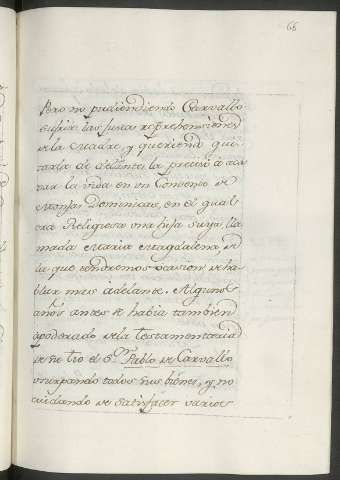 66
Pero no pudiendo este Carvallo
sufrir las justas reprehensiones
de la Madre, y queriendo qui-
tarla de delante, la precisó á aca-
var la vida en un Convento de
Monjas Dominicas, en el qual
era Religiosa una hija suya, lla
mada Maria Magdalena, de
la que tendremos ocasion de ha-
blar mas adelante. Algunos
años antes se habia tambien
apoderado de la testamentaria
de su tio el Sr. Pablo de Carvallo
usurpando todos sus bienes, y no
cuidando de satisfacer varios